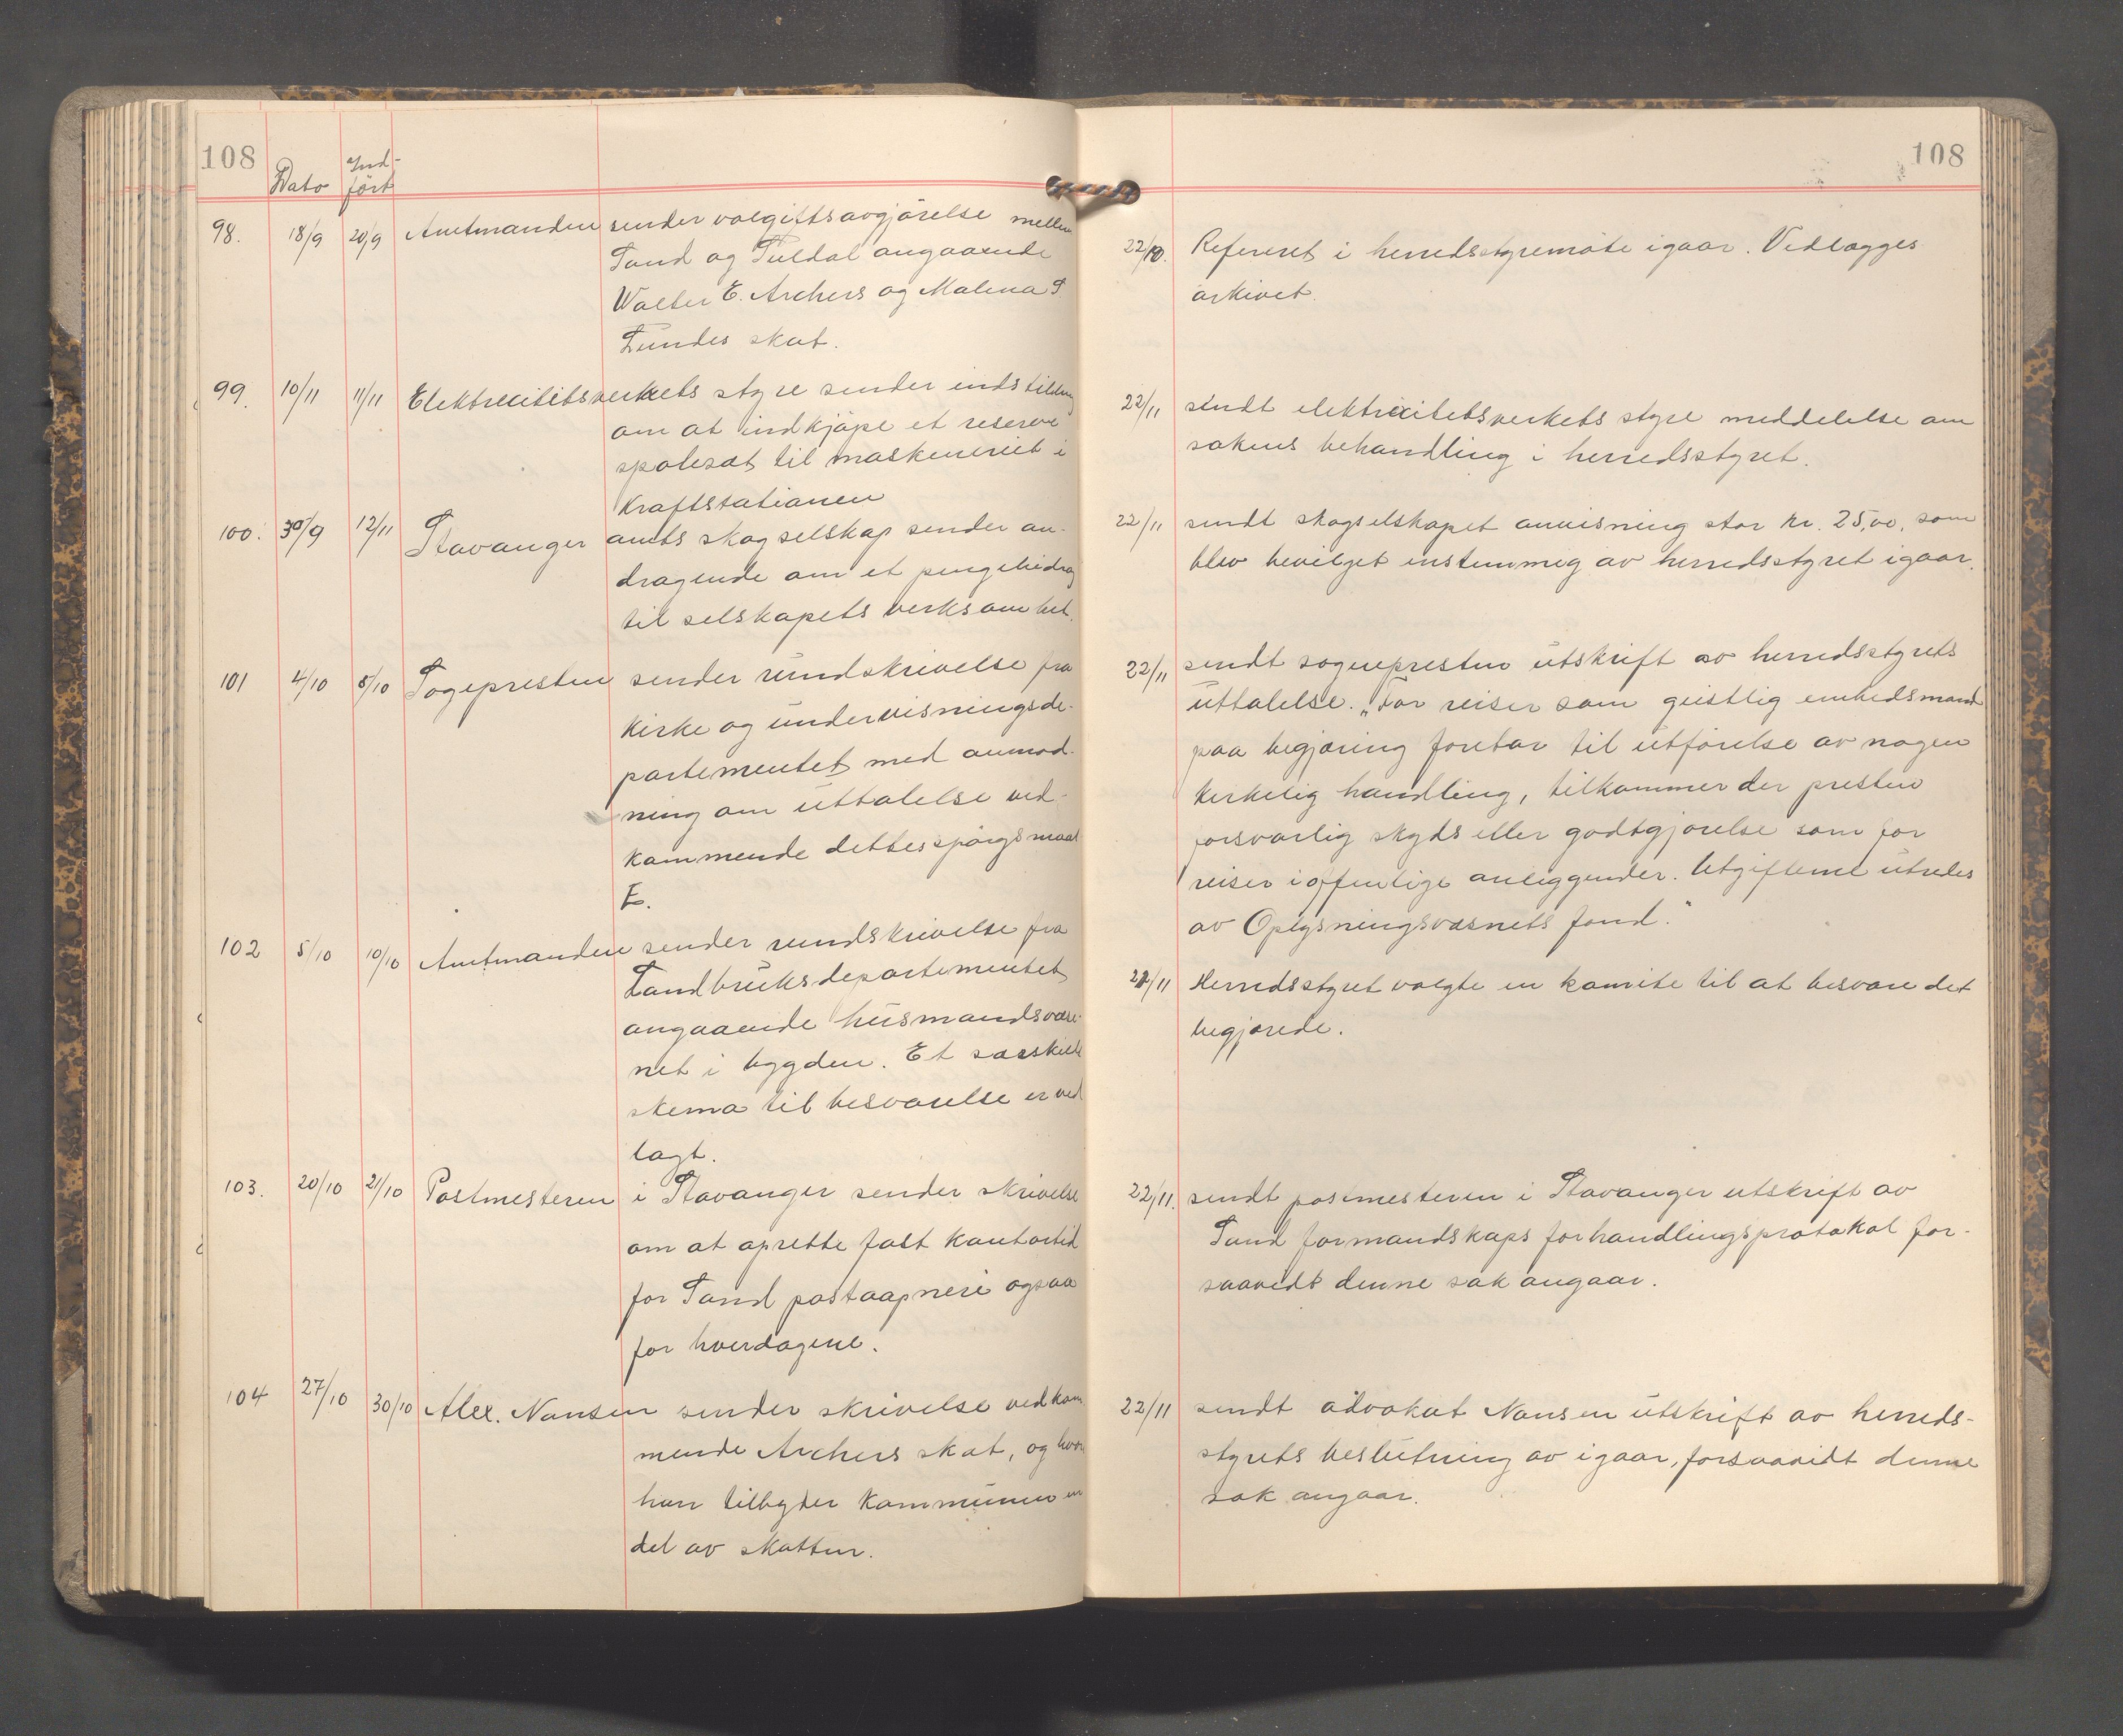 108
Dato
Ind-
ført
98. 18/9 20/9 Amtmanden sender voldgiftsavgjörelse mellem
Sand og Suldal angaaende
Walter E. Archers og Malena S
Lundes skat.
99. 10/11 11/11 Elektricitetsverkets styre sender indstilling
om at indkjöpe et reserve
spolesæt til maskineriet i
Kraftstationen
100. 30/9 12/11 Stavanger amts skogselskap sender an-
dragende om et pengebidrag
til selskapets verksomhet.
101 4/10 5/10 Sogepresten sender rundskrivelse fra
Kirke og undervisningsde-
partementet med anmod-
ning om uttalelse ved-
kommende dettes spörgsmaal
E.
102 5/10 10/10 Amtmanden sender rundskrivelse fra
Landbruksdepartementet
angaaende husmandsvæse-
net i bygden. Et særskilt
skema til besvarelse er ved
lagt.
103. 20/10 21/10 Postmesteren i Stavanger sender skrivelse
om at oprette fast kontortid
for Sand postaapneri ogsaa
for hverdagene.
104 27/10 30/10 Alex. Nansen sender skrivelse vedkom
mende Archers skat, og hvori
han tilbyder Kommunen en
del av skatten.
108
22/10. Referert i herredsstyremöte igaar. Vedlægges
arkivet.
22/11 sendt elektricitetsverkets styre meddelelse om
sakens behandling i herredsstyret.
22/11 sendt skogselskapet anvisning stor kr. 25,00, som
blev bevilget enstemmig av herredsstyret igaar.
22/11 sendt sognepresten utskrift av herredsstyrets
uttalelse. „For reiser som geistlig embedsmand
paa begjæring foretar til utförelse av nogen
kirkelig handling, tilkommer der presten
forsvarlig skyds eller godtgjörelse som for
reiser i offentlige anliggender. Utgifterne utredes
av Oplysningsvæsnets fond."
22/11 Herredsstyret valgte en komite til at besvare det
begjærede.
22/11. sendt postmesteren i Stavanger utskrift av
Sand formandskaps forhandlingsprotokol for-
saavidt denne sak angaar.
22/11 sendt advokat Nansen utskrift av herreds-
styrets beslutning av igaar, forsaavidt denne
sak angaar.